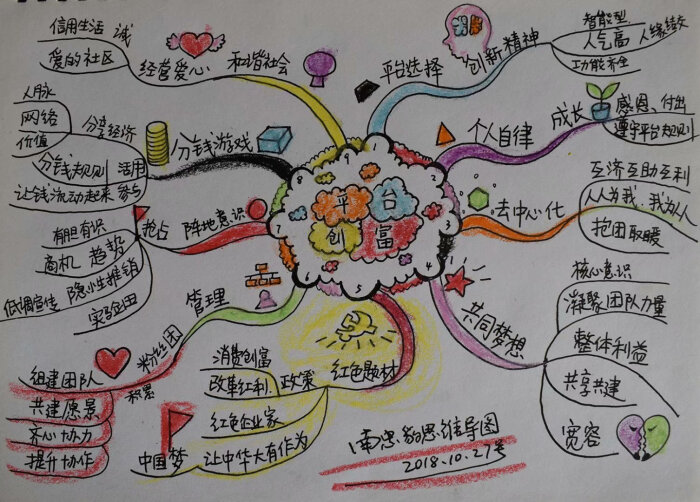 平台
创富
平台选择
创新精神
智能型
人气高
人缘
功能齐全
个人自律
成长
感恩、付出
遵守平台规则
去中心化
互济互助互利
人人为我,我为人人
抱团取暖
共同梦想
核心意识
凝聚团队力量
整体利益
共享共建
宽容
红色题材
政策
消费创富
改革红利
红色企业家
让中华大有作为
中国梦
管理
粉丝团
积累
组建团队
共建愿景
齐心协力
提升协作
阵地意识
抢占
有胆有识
商机 趋势
低调宣传 隐性推销
实验田
分钱游戏
分享经济
人脉
网络
价值
分钱规则 活用
让钱流动起来 参与
和谐社会
经营爱心
信用生活 诚
爱的社区
思维导图
2018.10.27号